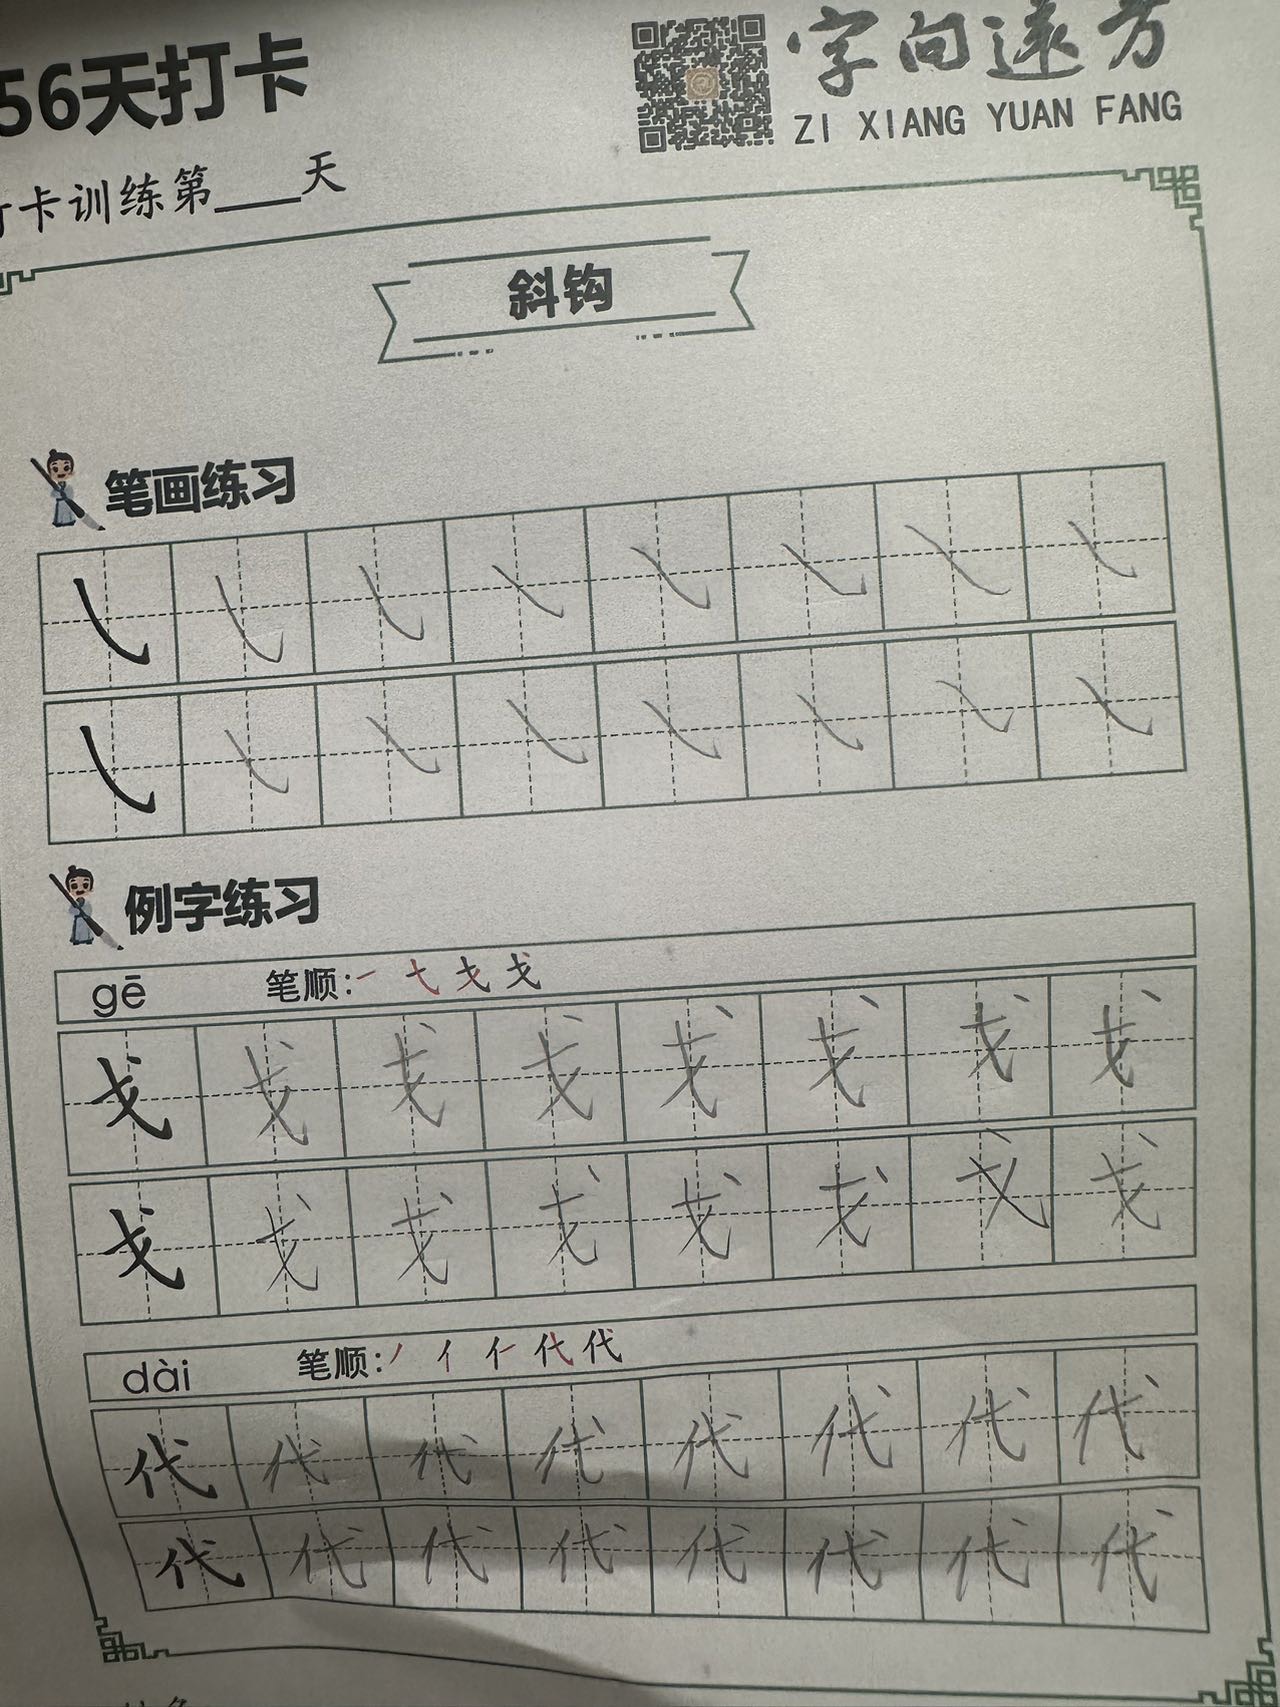 56天打卡
字向远方
ZI XIANG YUAN FANG
打卡训练第____天
斜钩
笔画练习
㇂ ㇂ ㇂ ㇂ ㇂ ㇂ ㇂ ㇂
㇂ ㇂ ㇂ ㇂ ㇂ ㇂ ㇂ ㇂
例字练习
gē 笔顺: 一 弋 戈 戈
戈 戈 戈 戈 戈 戈 戈 戈
戈 戈 戈 戈 戈 戈 戈 戈
dài 笔顺: 丿 亻 仁 代 代
代 代 代 代 代 代 代 代
代 代 代 代 代 代 代 代